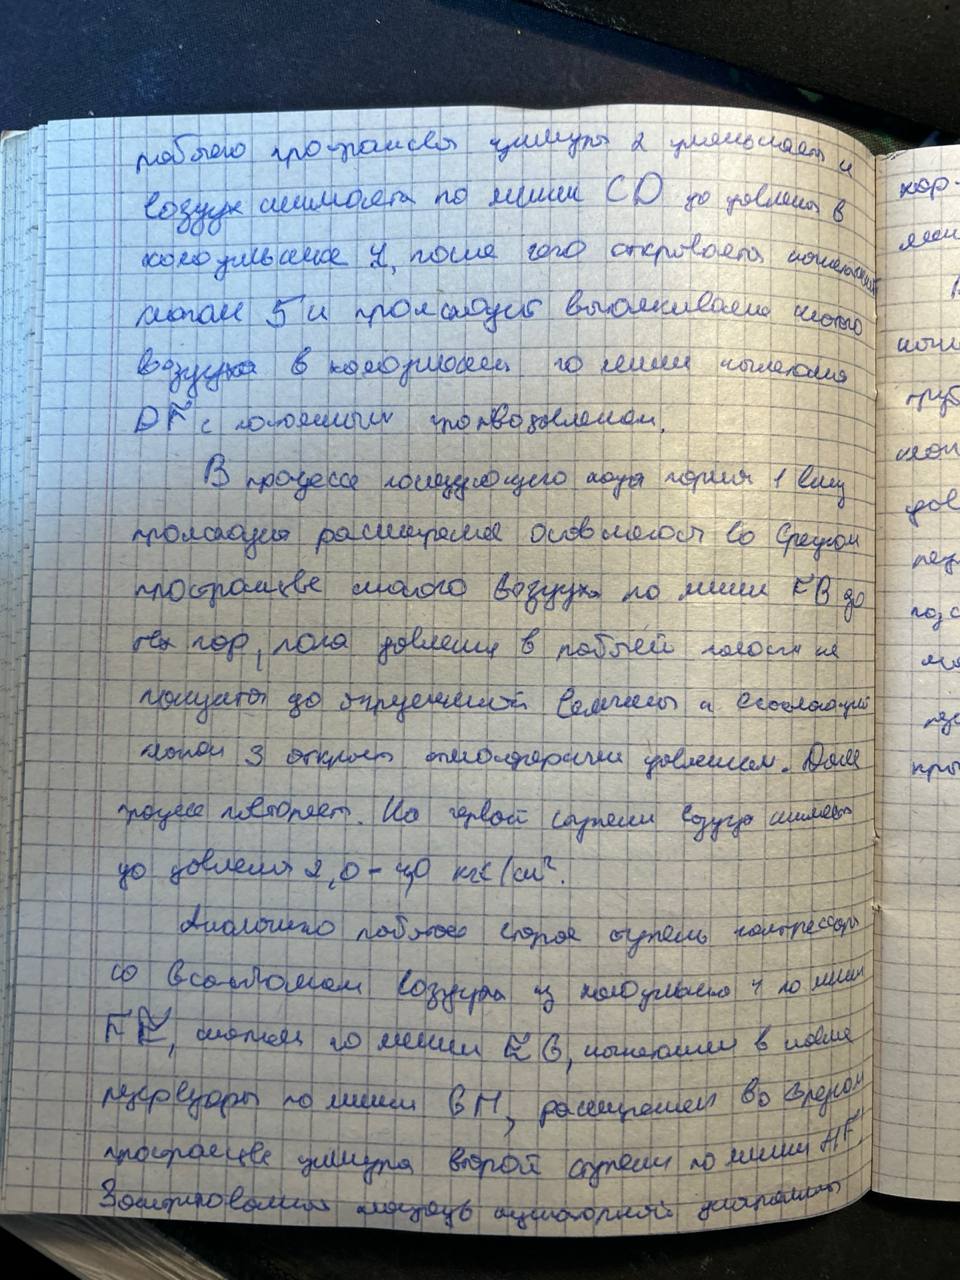 рабочего пространства цилиндра 2 уменьшается и
воздух сжимается по линии CD до давления в
холодильнике 4, после чего открывается нагнетательный
клапан 5 и происходит выталкивание сжатого
воздуха в холодильник по линии нагнетания
DF с постоянным противодавлением.
В процессе последующего хода поршня 1 вниз
происходит расширение оставшегося во вредном
пространстве сжатого воздуха по линии FB до
тех пор, пока давление в рабочей полости не
понизится до определенной величины и всасывающий
клапан 3 откроется атмосферным давлением. Далее
процесс повторяется. На первой ступени воздух сжимается
до давления 2,0 - 4,0 кгс/см².
Аналогично работает вторая ступень компрессора
со всасыванием воздуха из холодильника 4 по линии
FE, сжатием по линии EG, нагнетанием в главные
резервуары по линии GH, расширением во вредном
пространстве цилиндра второй ступени по линии HF.
Заштрихованная площадь индикаторной диаграммы
кор-